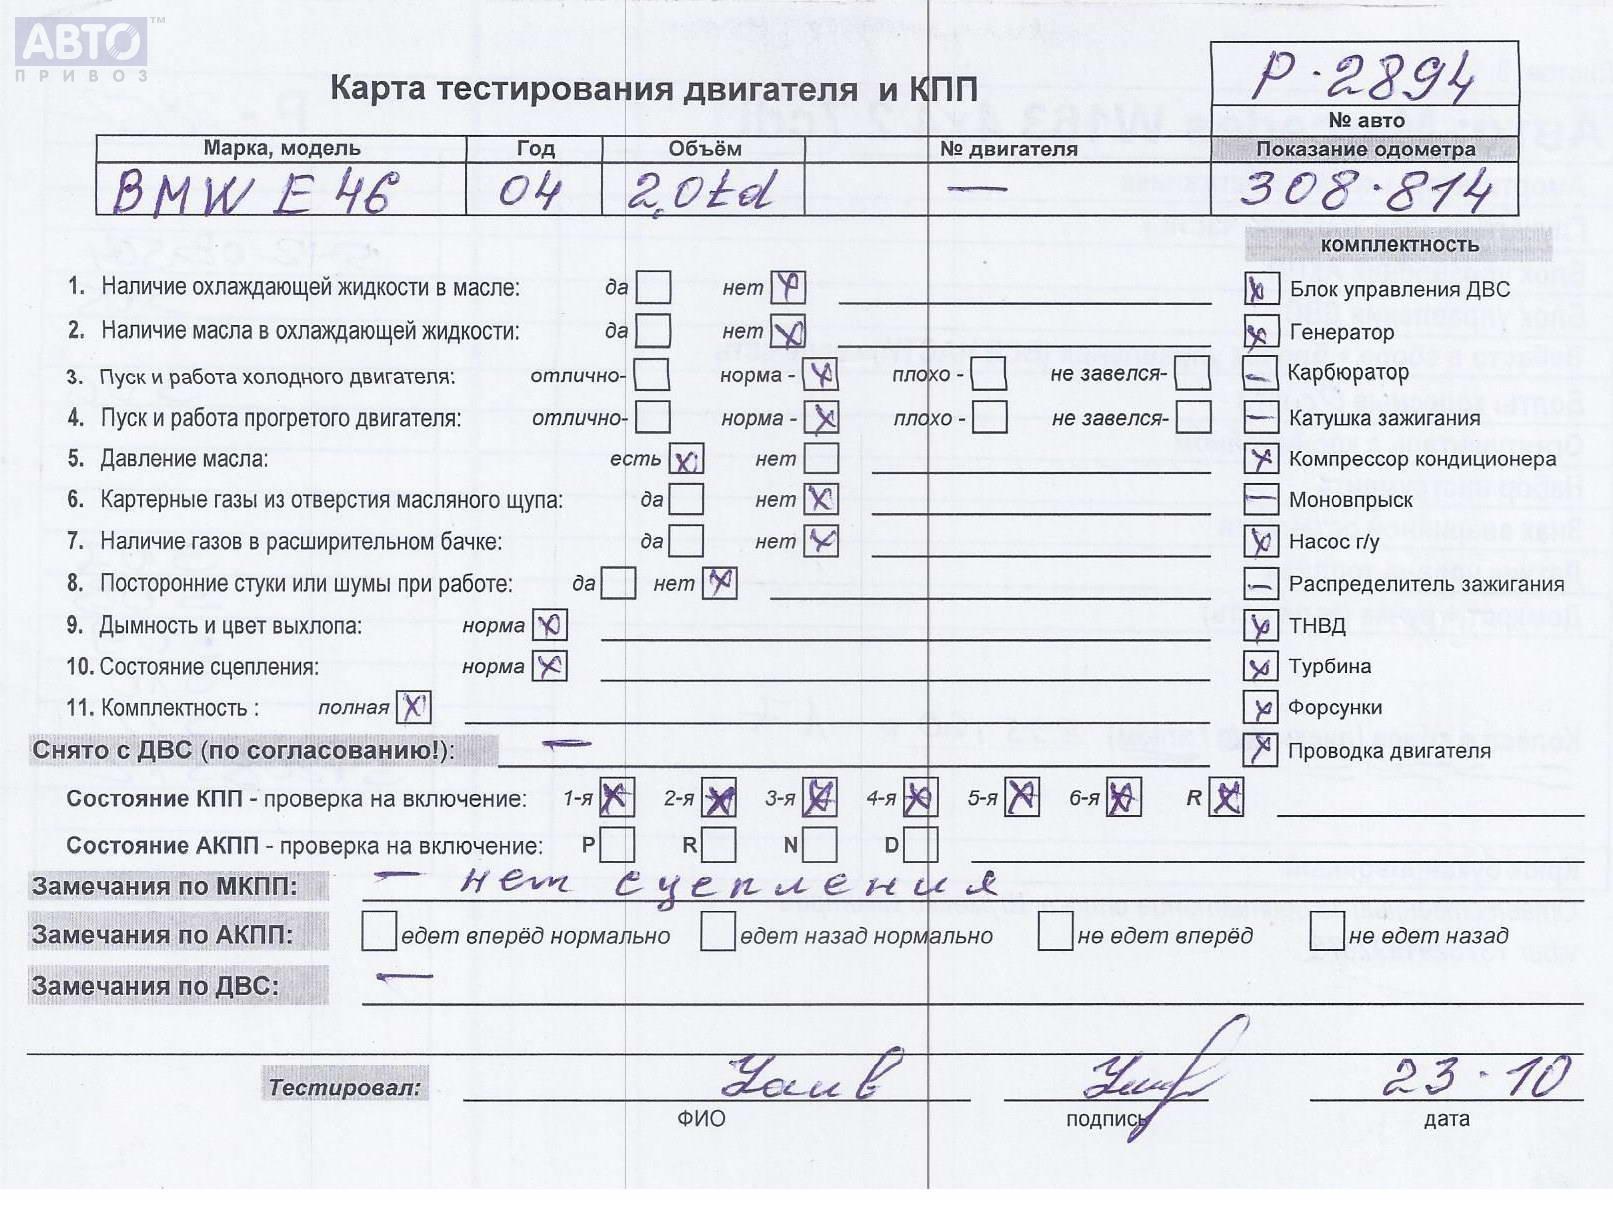 АВТО™
ПРИВОЗ
Р-2894
Карта тестирования двигателя и КПП
№ авто
Марка, модель Год Объём № двигателя Показание одометра
BMW E 46 04 2,0td — 308.814
комплектность
1. Наличие охлаждающей жидкости в масле: да нет X X Блок управления ДВС
2. Наличие масла в охлаждающей жидкости: да нет X X Генератор
3. Пуск и работа холодного двигателя: отлично- норма - X плохо - не завелся- — Карбюратор
4. Пуск и работа прогретого двигателя: отлично- норма - X плохо - не завелся- — Катушка зажигания
5. Давление масла: есть X нет X Компрессор кондиционера
6. Картерные газы из отверстия масляного щупа: да нет X — Моновпрыск
7. Наличие газов в расширительном бачке: да нет X X Насос г/у
8. Посторонние стуки или шумы при работе: да нет X — Распределитель зажигания
9. Дымность и цвет выхлопа: норма X X ТНВД
10. Состояние сцепления: норма X X Турбина
11. Комплектность : полная X X Форсунки
Снято с ДВС (по согласованию!): — X Проводка двигателя
Состояние КПП - проверка на включение: 1-я X 2-я X 3-я X 4-я X 5-я X 6-я X R X
Состояние АКПП - проверка на включение: P R N D
Замечания по МКПП: — нет сцепления
Замечания по АКПП: едет вперёд нормально едет назад нормально не едет вперёд не едет назад
Замечания по ДВС: —
Тестировал: 23.10
ФИО подпись дата